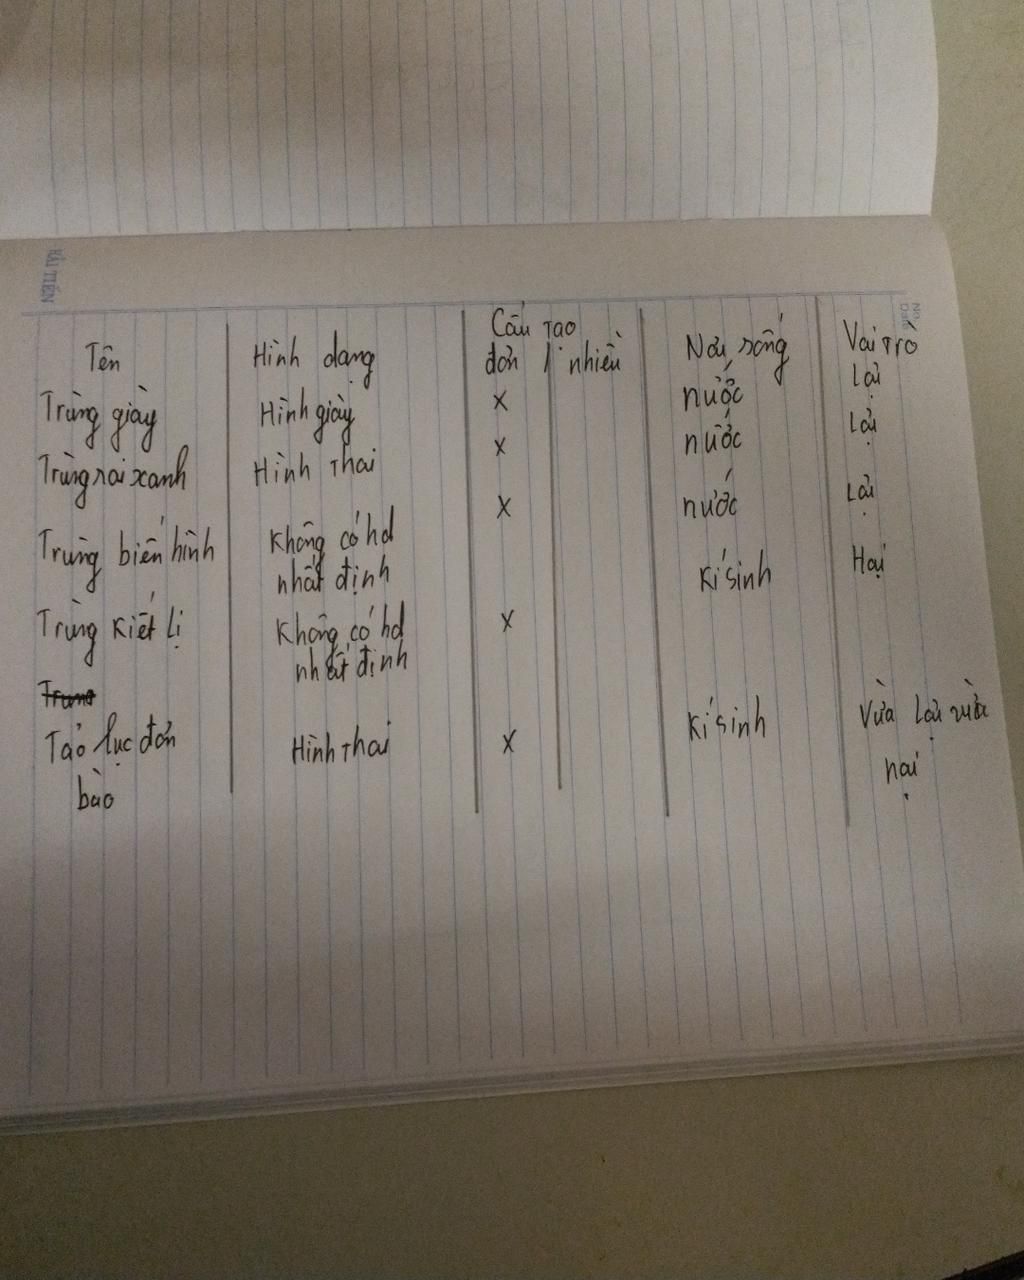 HẢI TIẾN
Tên | Hình dạng | Cấu tạo đơn | nhiều | Nơi sống | Vai trò
Trùng giày | Hình giày | x | | nước | Lợi
Trùng roi xanh | Hình thoi | x | | nước | Lợi
Trùng biến hình | Không có hd nhất định | x | | nước | Lợi
Trùng kiết lị | Không có hd nhất định | x | | Kí sinh | Hại
Tảo lục đơn bào | Hình thoi | x | | Kí sinh | Vừa lợi vừa hại